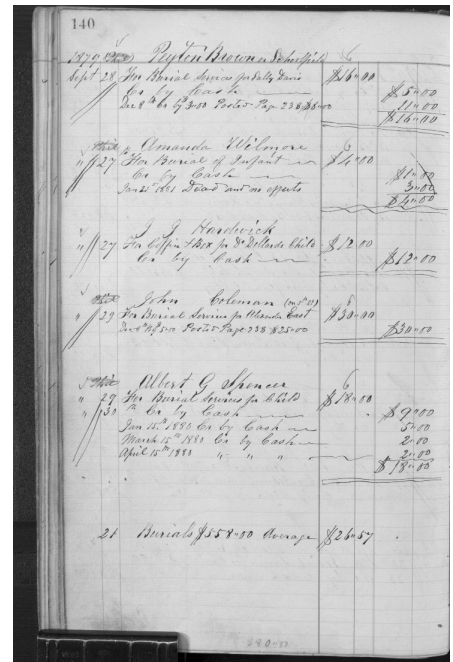 140
1879 Peyton Brown
Sept 28 For Burial Services for Sally Davis $16"00
Cr by Cash $5"00
Dec 8th Cr by 3"00 Posted Page 238 $8"00 11"00
$16"00
Amanda Wilmore
" 27 For Burial of Infant $4"00
Cr by Cash $1"00
Jan 25th 1881 Dead and no effects 3"00
$4"00
J J Hardwick
" 27 For Coffin & Box for Dr Dollards Child $12"00
Cr by Cash $12"00
John Coleman
" 29 For Burial Services for East $30"00
Posted Page 238 $25"00 $30"00
Albert G Spencer
" 29 For Burial Services for Child $18"00
" 30 Cr by Cash $9"00
Jan 15th 1880 Cr by Cash 5"00
March 15th 1880 Cr by Cash 2"00
April 15th 1880 " " " 2"00
$18"00
21 Burials $558"00 Average $26"57